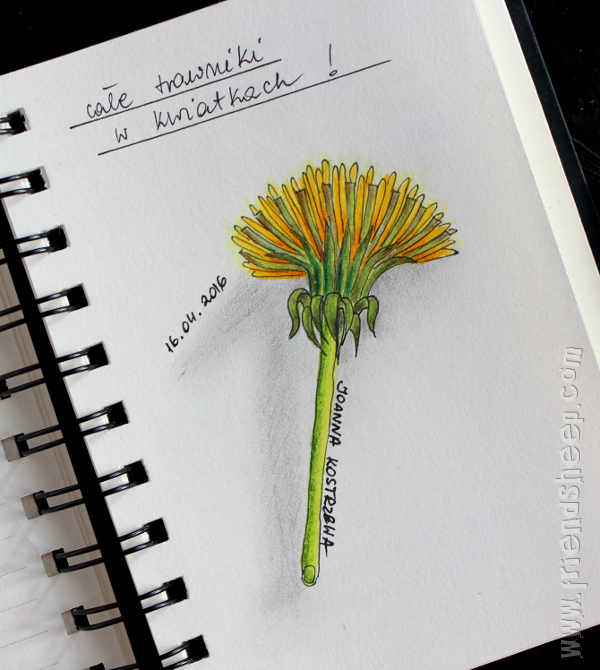 całe trawniki
w kwiatkach !
16.04.2016
JOANNA KOSTRZEWA
www.friendsheep.com